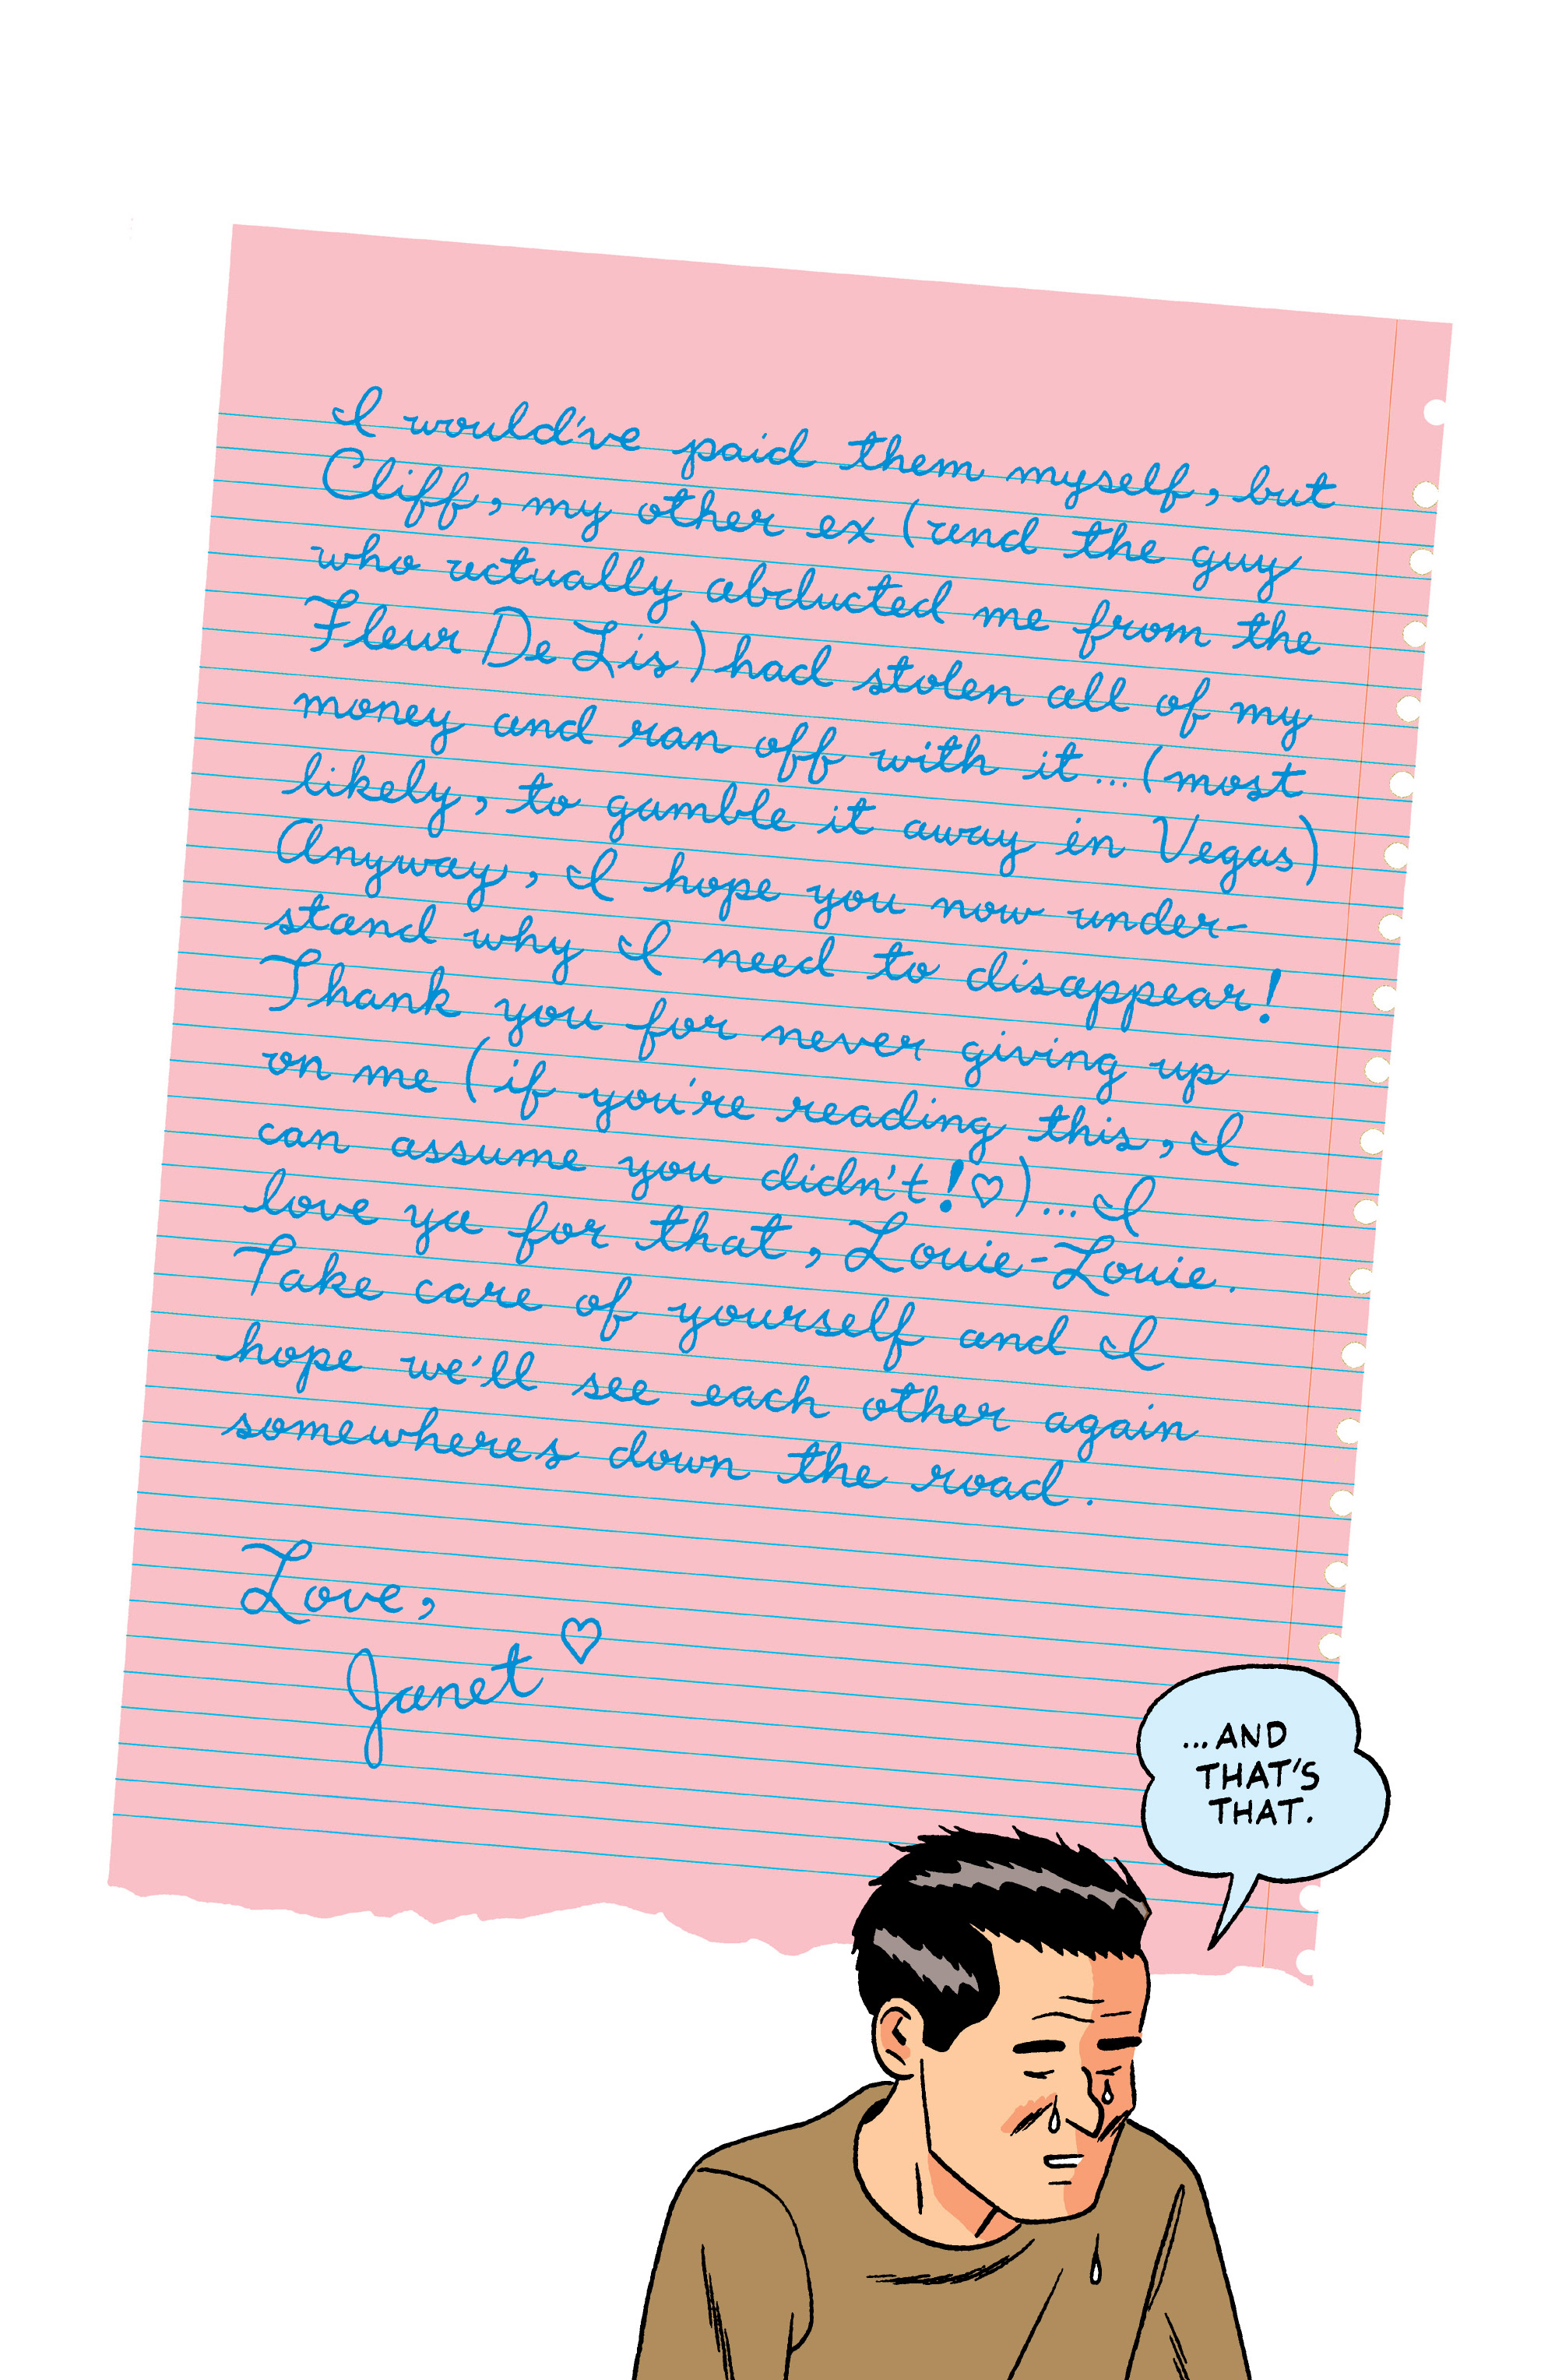 I would've paid them myself, but
Cliff, my other ex (and the guy
who actually abducted me from the
Fleur De Lis) had stolen all of my
money and ran off with it...(most
likely, to gamble it away in Vegas)
Anyway, I hope you now under-
stand why I need to disappear!
Thank you for never giving up
on me (if you're reading this, I
can assume you didn't!♡)... I
love ya for that, Louie-Louie.
Take care of yourself and I
hope we'll see each other again
somewheres down the road.
Love,
Janet ♡
...AND
THAT'S
THAT.